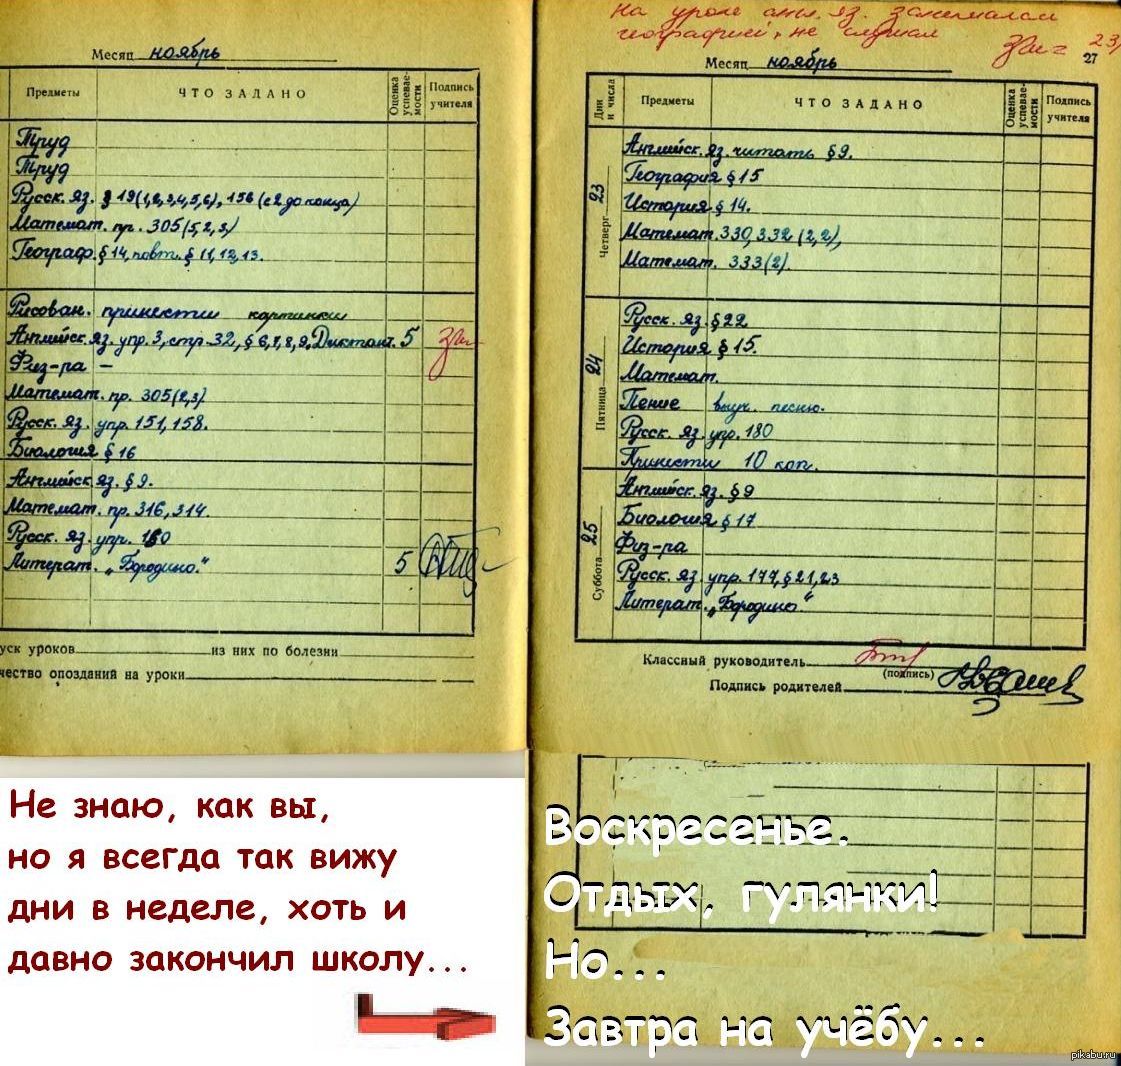 Месяц ноябрь
Предметы ЧТО ЗАДАНО Оценка успевае- мости Подпись учителя
Труд
Труд
Русск. яз. § 19(1,2,3,4,5,6), 156 (с 2 до конца)
Математ. пр. 305(5,2,3)
Географ. § 14, повт. § 11, 12, 13.
Рисован. принести картинки
Английск. яз. упр. 3, стр. 32, § 6,7,8,9, Диктант. 5
Физ-ра –
Математ. пр. 305(2,3)
Русск. яз. упр. 151, 158.
Биология § 16
Английск яз. § 9.
Математ. пр. 316, 314.
Русск. яз. упр. 160
Литерат. „Бородино." 5
уск уроков из них по болезни
чество опозданий на уроки
На уроке анг. яз. занимался
географией, не слушал
23/
27
Месяц ноябрь
Дни и числа Предметы ЧТО ЗАДАНО Оценка успевае- мости Подпись учителя
Четверг 23
Английск. яз. читать § 9.
География § 15
История § 14.
Математ. 330, 332 (2,2),
Математ. 333(2).
Пятница 24
Русск. яз. § 22
История § 15.
Математ.
Пение выуч. песню.
Русск. яз. упр. 180
Принести 10 коп.
Суббота 25
Английск. яз. § 9
Биология § 17
Физ-ра
Русск. яз упр. 177, § 21, 23
Литерат. „Бородино."
Классный руководитель
(подпись)
Подпись родителей
Не знаю, как вы,
но я всегда так вижу
дни в неделе, хоть и
давно закончил школу...
Воскресенье.
Отдых, гулянки!
Но...
Завтра на учёбу...
pikabu.ru